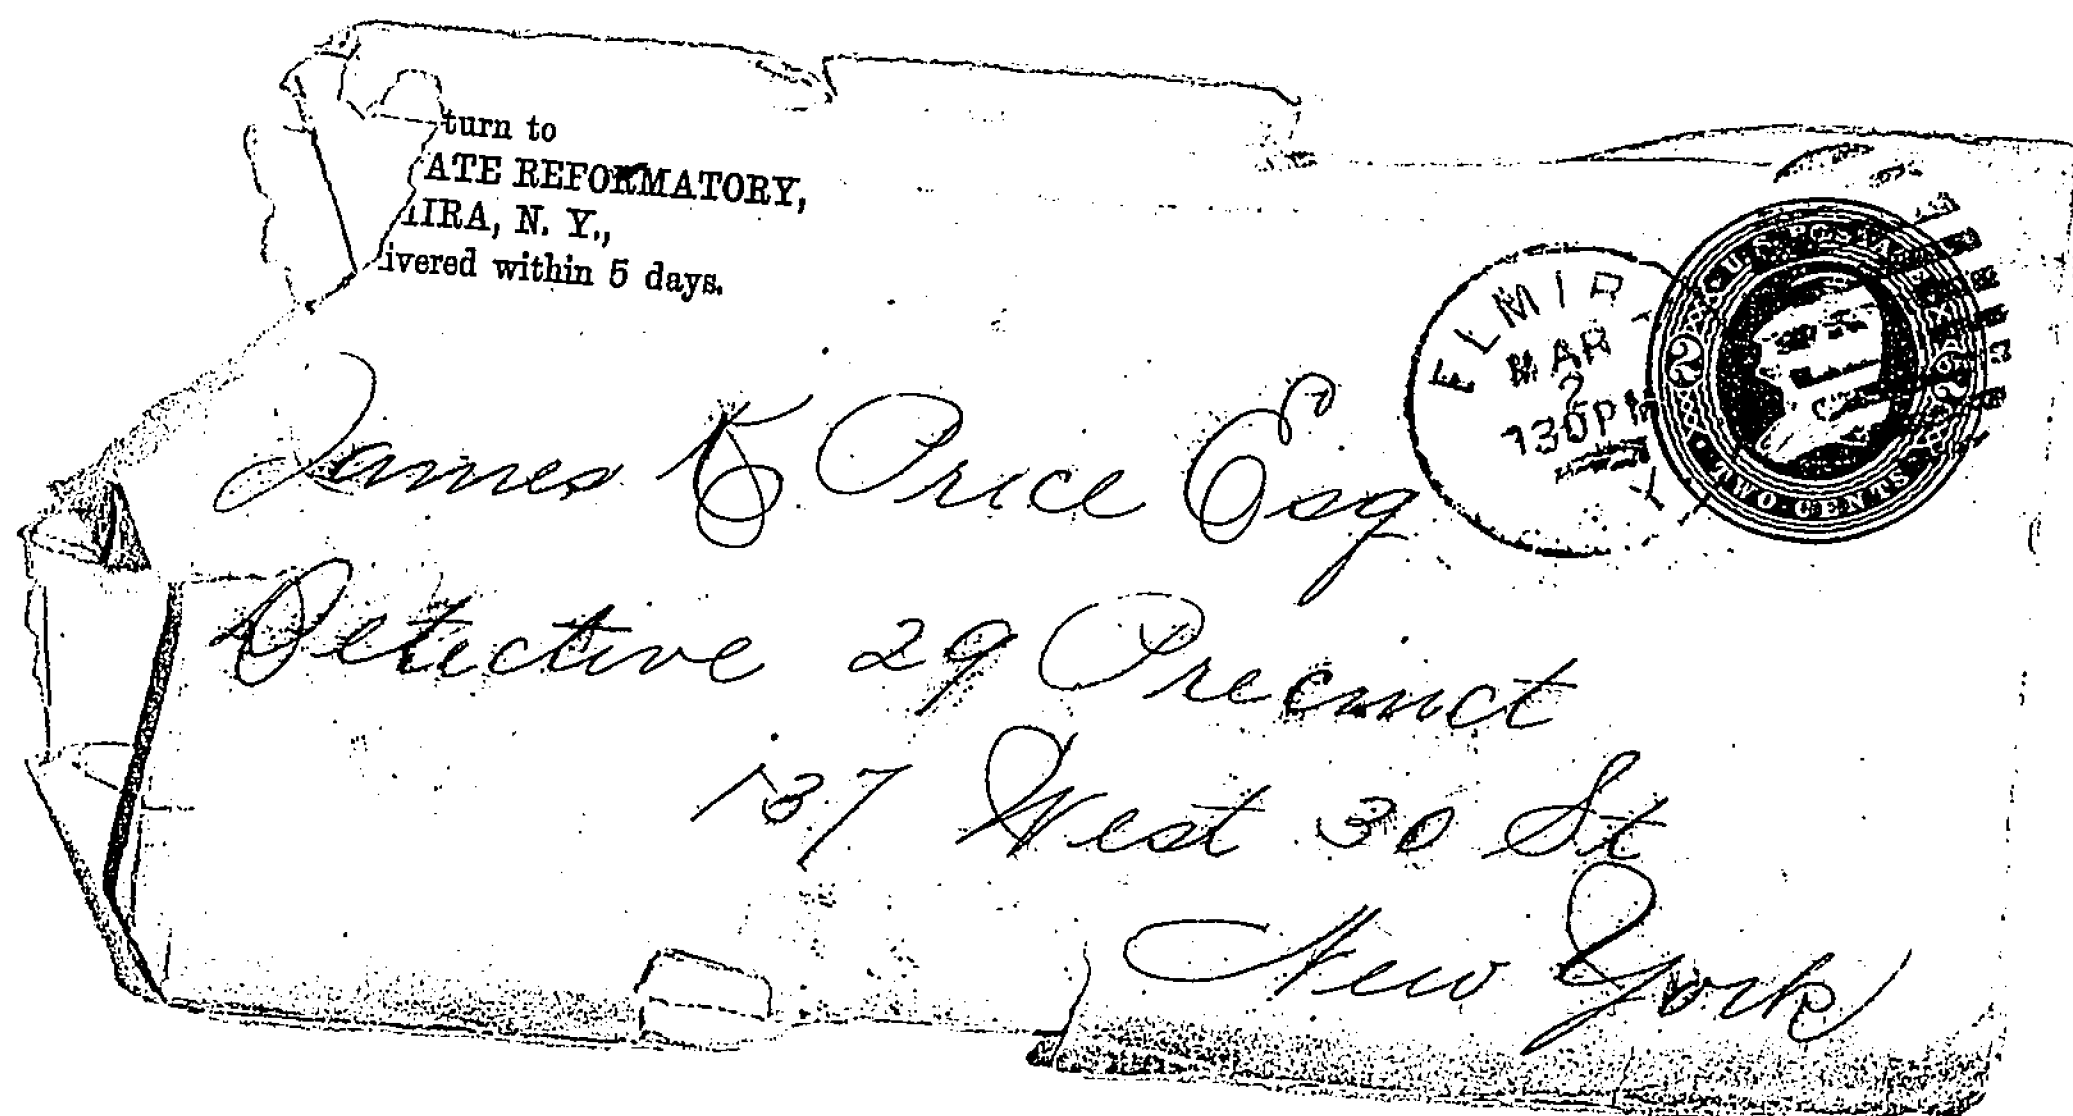 turn to
ATE REFORMATORY,
IRA, N. Y.,
ivered within 5 days.
ELMIR
MAR
2
130PM
Y
U.S. POSTAGE
2 2
TWO CENTS
James K Price Esq
Detective 29 Precinct
137 West 30 St
New York